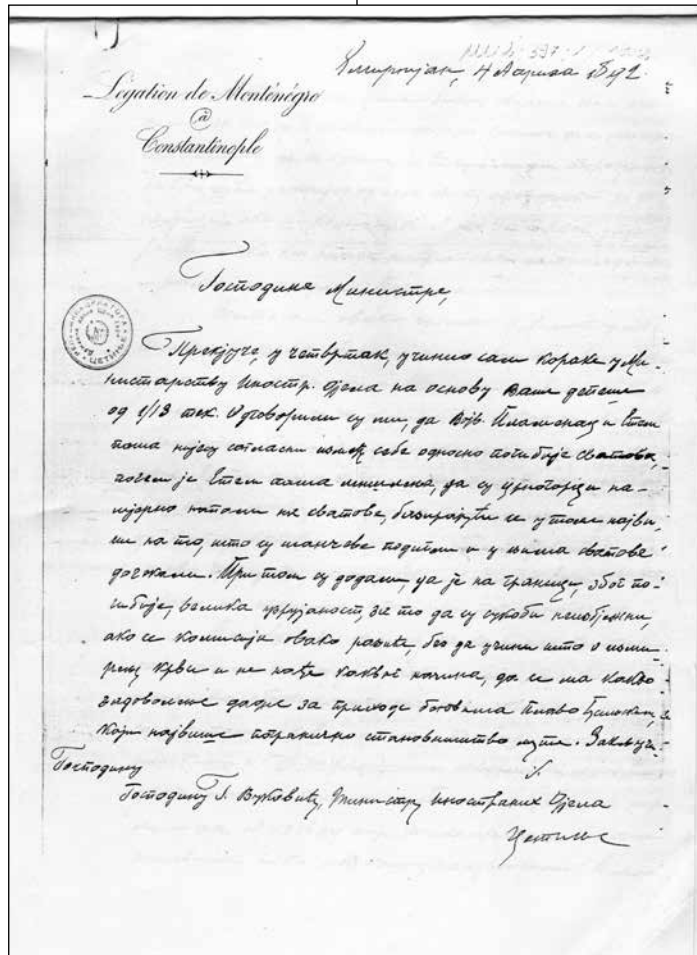 Емирођан, 4 Априла 1892.
Légation de Monténégro
à
Constantinople
Господине Министре,
Прекјуче, у четвртак, учинио сам кораке у Ми-
нистарству Иностр. Дјела на основу Ваше депеше
од 1/13 тек. Одговорили су ми, да Војв. Пламенац и Етем
паша нијесу сагласни између себе односно погибије сватова,
почем је Етем паша мишљења, да су црногорци на-
мјерно напали на сватове, базирајући се у томе најви-
ше на то, што су шанчеве подигли и у њима сватове
дочекали. При том су додали, да је на граници, због по-
гибије, велика узрујаност, за то да су сукоби неизбјежни,
ако се комисија овако разиђе, без да учини што о изми-
рењу крви и не нађе каквог начина, да се ма какво
задовољење дадне за приходе
који највише погранично становништво
Господину
Господину Г. Вуковићу, Министру Иностраних Дјела
Цетиње